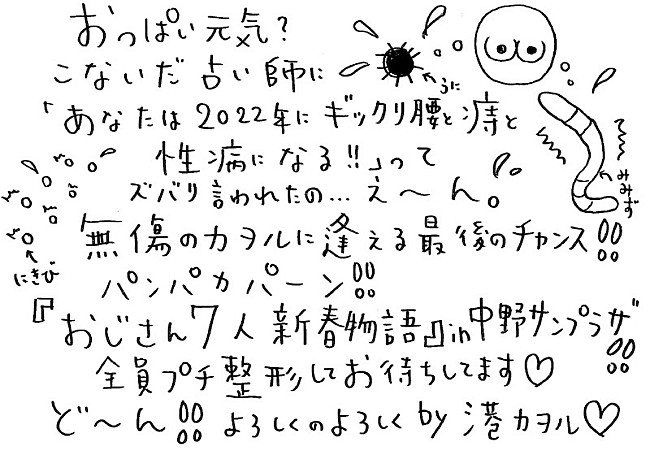 おっぱい元気?
こないだ占い師に
うに
「あなたは2022年にギックリ腰と痔と
性病になる!!」って
みみず
ズバリ言われたの…え〜ん。
無傷のカヲルに逢える最後のチャンス!!
にきび
パンパカパーン!!
『おじさん7人新春物語』in中野サンプラザ!!
全員プチ整形してお待ちしてます♡
ど〜ん!!よろしくのよろしくby港カヲル♡